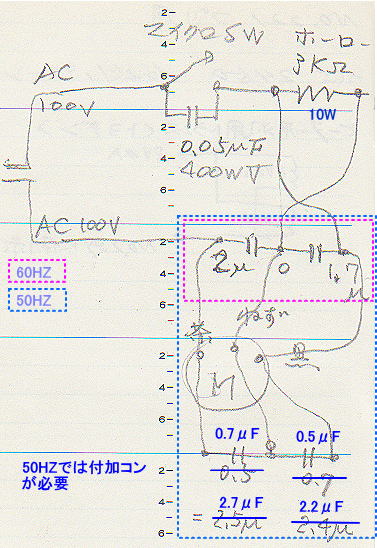 マイクロSW
ホーロー
3KΩ
10W
AC
100V
0.05μF
400WV
AC 100V
2μ
0
1.7
μ
60HZ
50HZ
茶
ねずい
黒
M
0.7μF
0.5μF
0.5
0.7
50HZでは付加コン
が必要
2.7μF
2.2μF
= 2.5μ
2.4μ
2
4
6
2
4
6
2
4
6
2
4
6
2
4
6